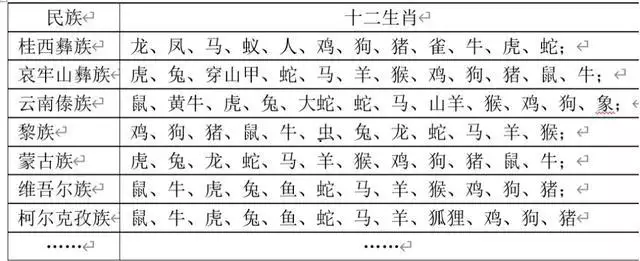 民族 十二生肖
桂西彝族 龙、凤、马、蚁、人、鸡、狗、猪、雀、牛、虎、蛇；
哀牢山彝族 虎、兔、穿山甲、蛇、马、羊、猴、鸡、狗、猪、鼠、牛；
云南傣族 鼠、黄牛、虎、兔、大蛇、蛇、马、山羊、猴、鸡、狗、象；
黎族 鸡、狗、猪、鼠、牛、虫、兔、龙、蛇、马、羊、猴；
蒙古族 虎、兔、龙、蛇、马、羊、猴、鸡、狗、猪、鼠、牛；
维吾尔族 鼠、牛、虎、兔、鱼、蛇、马、羊、猴、鸡、狗、猪；
柯尔克孜族 鼠、牛、虎、兔、鱼、蛇、马、羊、狐狸、鸡、狗、猪
…… ……